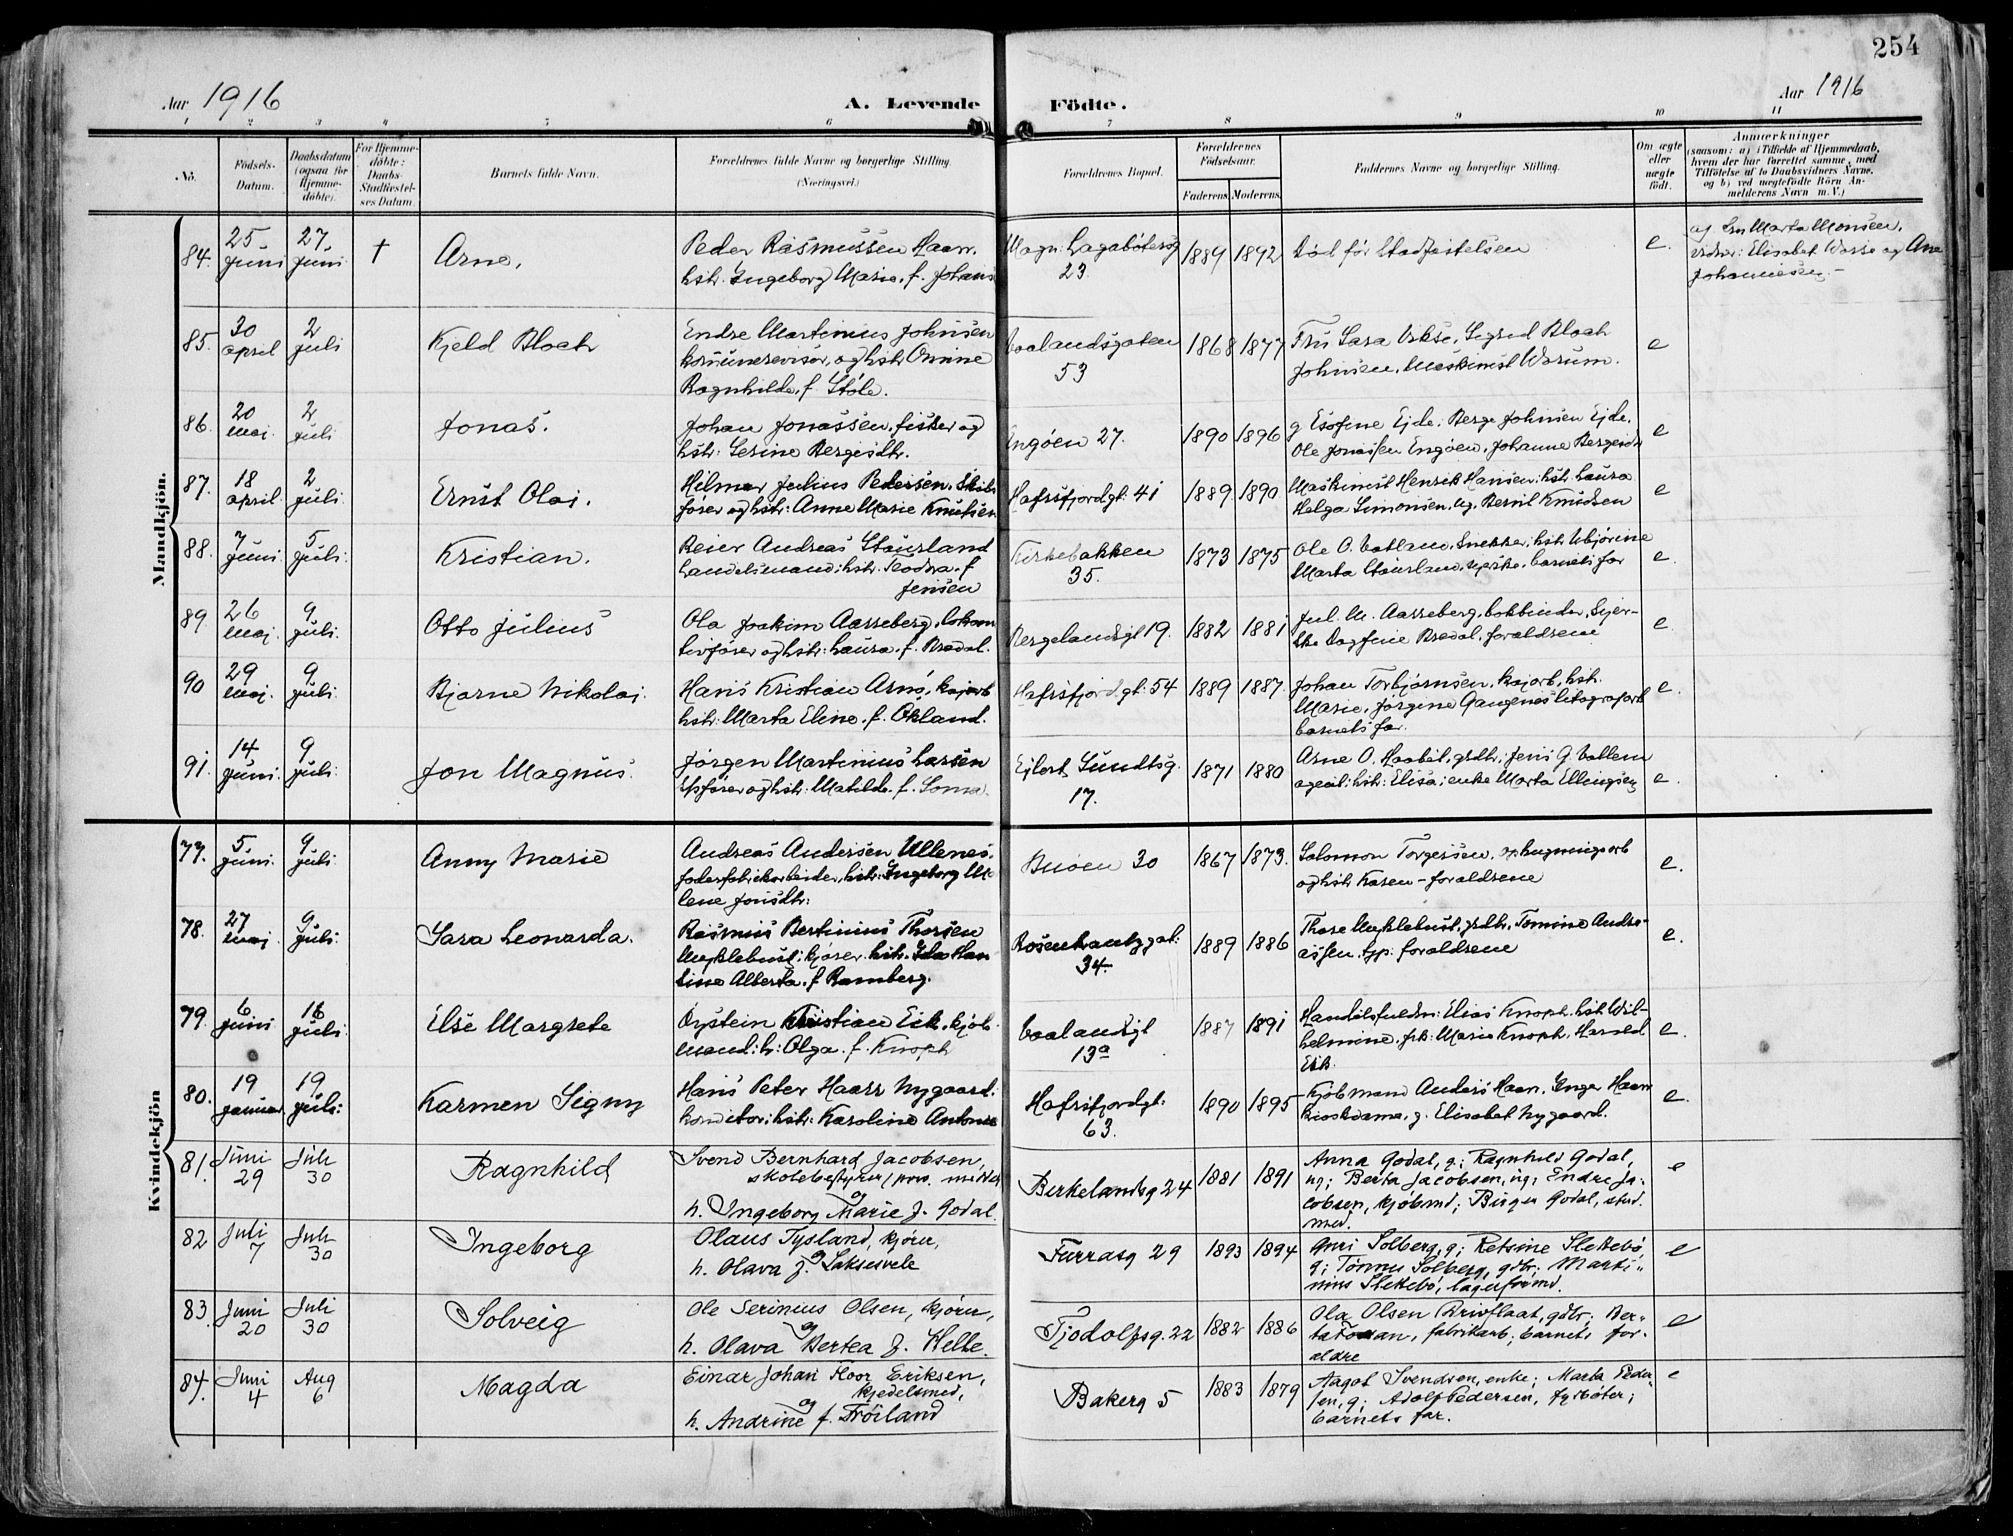 254
Aar 1916
A. Levende Födte.
Aar 1916
1 2 3 4 5 6 7 8 9 10 11
No.
Födsels-
Datum.
Daabsdatum
(ogsaa for
Hjemme-
döbte).
For Hjemme-
döbte:
Daabs-
Stadfæstel-
ses Datum.
Barnets fulde Navn.
Forældrenes fulde Navne og borgerlige Stilling.
(Næringsvei.)
Forældrenes Bopæl.
Forældrenes
Födselsaar.
Faderens. Moderens.
Faddernes Navne og borgerlige Stilling.
Om ægte
eller
uægte
födt.
Anmærkninger
(saasom: a) i Tilfælde af Hjemmedaab,
hvem der har forrettet samme, med
Tilföielse af to Daabsvidners Navne.
og b) ved uægtefödte Börn An-
melderens Navn m. V.)
Mandkjön.
84. 25 Juni 27 Juni † Arne.
Peder Rasmussen Haan.
hstr. Ingeborg Marie. f. Johans
Magn. Lagabøtersg
23.
1889 1892
Død før Stadfestelsen
e.
af Marta Monsen.
Elisabet og Ane
Johannesen.
85. 30 april 2 Juli Kjeld Bloch
Endre Martinius Johnsen
komunerevisor, og hstr. Omine
Ragnhilde, f. Støle.
Vaalandsgaten
53
1868 1877
Fru Sara Sigrid Bloch
Johnsen, Maskinist Warum.
e
86. 20 maj. 2 Juli Jonas.
Johan Jonassen, fisker og
hstr: Serine Bergesdtr.
Engøen 27.
1890 1896
g Esofine Ejde. Berge Johnsen Ejde.
Ole Jonassen Engøen, Johanne Bergesdr
e
87. 18 april. 2 Juli. Ernst Olai.
Hilmar Julius Pedersen. Skibs
fører og hstr: Anne Marie Knutsen
Hafrsfjordgt. 41
1889 1890
Maskinist Henrik Hansen: hstr. Laura
Helga Simonsen, ug. Bernt Knudsen
e
88. 7 Juni. 5 Juli. Kristian.
Reier Andreas Stansland
handelsmand: hstr. Teodora. f
Jensen
Kirkebakken
35.
1873 1875
Ole O. Vatland, Snekker, hstr.
Marta Stansland, barnets far
e.
89. 26 maj. 9 Juli. Otto Julius
Ola Joakim Aarreberg, Lokom
tivfører og hstr: Laura. f. Bredal.
Bergelandsgt 19.
1882 1881
Jul. M. Aarreberg, bokbinder,
Dagfine Bredal, foreldrene
e.
90 29 maj. 9 Juli. Bjarne Nikolai.
Hans Kristian Arnø, kajarb
hstr: Marta Eline. f. Okland.
Hafrsfjordgt. 54
1889 1887.
Johan Torbjørnsen, kajarb, hstr.
Marie, Jørgine Gangenes litografarb
barnets far.
e.
91. 14 Juni. 9 Juli. Jon Magnus.
Jørgen Martinius Larsen
fører og hstr: Matilde. f. Soma.
Ejlert Sundtsg.
17.
1871 1880
Arne O. Haabet, grdbr; Jens G. Vatlem
agent: hstr: Elisa; enke Marta Ellingsen
e.
Kvindekjön
77. 5 Juni. 9 Juli. Anny Marie
Andreas Andersen Ullenes.
foderfabrikarbeider, hstr: Ingeborg Ma
lene Jonsdtr:
Buøen 30
1867 1873.
Salomon Torgersen, ophugningsarb
og hstr Karen - foreldrene
e.
78. 27 maj 9 Juli. Sara Leonarda.
Rasmus Bertinius Thorsen
Myklebust; kjører. hstr. Ida Han-
tine Alberta. f Ramberg.
Rosenkrantzgat.
34.
1889 1886
Thore Myklebust, grdbr, Tomine Andre-
assen. tyjp. foreldrene
e.
79. 6 Juni 16 Juli. Else Margrete
Øystein Kristian Eik, kjøb
mand: h: Olga. f. Knoph
Vaalandsgt
13a
1887 1891
Handelsfuldm: Elias Knoph. hst. Wil-
helmine, frk: Marie Knoph, Harald
Eik.
e.
80. 19 januar. 19 Juli: Karmen Signy
Hans Peter Haarr Nygaard.
konditor: hstr: Karoline Antonie
Hafrsfjordgt.
63.
1890 1895
Kjøbmand Anders Haan, Inger Haan
kioskdame, g. Elisabet Nygaard.
e.
81. Juni 29 Juli 30 Ragnhild
Svend Bernhard Jacobsen,
skolebestyrer
og
h. Ingeborg Marie f. Godal.
Birkelandsg 24
1881 1891
Anna Godal, g.; Ragnhild Godal,
ug; Berta Jacobsen, ug; Endre Ja-
cobsen, kjøbmd; Birger Godal, stud.
med.
e
82 Juli 7 Juli 30 Ingeborg
Olaus Tysland, kjører,
og
h. Olava f. Laksesvele
Furrasg 29
1893 1894
Guri Solberg, g; Retsine Slettebø,
g; Tønnes Solberg, gdbr; Marti-
nius Slettebø, lagerformd.
e
83. Juni 20 Juli 30 Solveig
Ole Serinius Olsen, kjører,
og
h. Olava Bertea f. Helle.
Tjodolfsg. 22
1882 1886
Ola Olsen Brivflaat, gdbr; Ber-
ta Foman, fabrikarb; barnets for-
aldre
e
84. Juni 4 Aug 6 Magda
Einar Johan Floor Eriksen,
kjedelsmed,
og
h. Andrine f. Frøiland
Bakerg 5
1883 1879
Aagot Svendsen, enke; Marta Peder-
sen, g; Adolf Pedersen, fyrbøter;
barnets far.
e